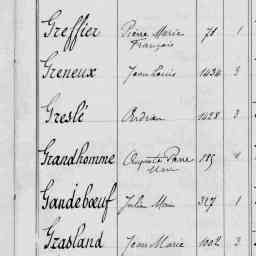 Greffier Pierre Marie 78 1
François
Greneux Jean Louis 1434 3
Greslé Adrien 1428 3
Grandhomme Auguste Pierre 185 4
Marie
Gandebœuf Julie Marie 327 1
Grasland Jean Marie 1002 3